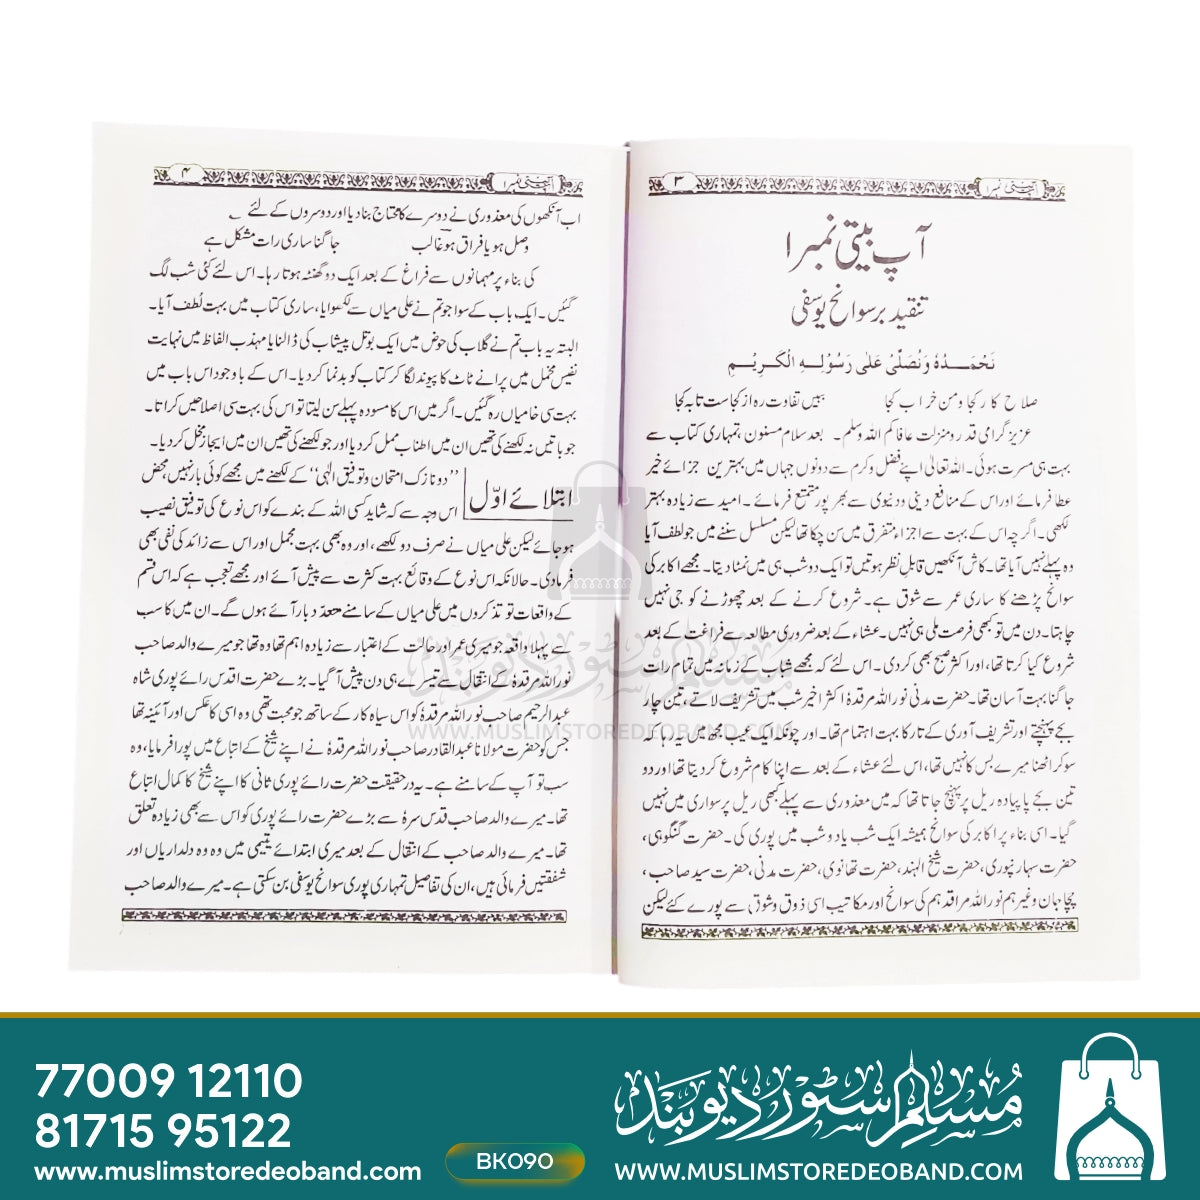 آپ بیتی نمبر ۱
۳
آپ بیتی نمبر ۱
تنقید بر سوانح یوسفی
نَحْمَدُهٗ وَنُصَلِّیْ عَلٰی رَسُوْلِهِ الْکَرِیْمِ
صلاح کار کجا و من خراب کجا    ببیں تفاوت رہ از کجاست تا بہ کجا
عزیز گرامی قدر و منزلت عافاکم اللہ وسلم۔ بعد سلام مسنون، تمہاری کتاب سے
بہت ہی مسرت ہوئی۔ اللہ تعالیٰ اپنے فضل و کرم سے دونوں جہاں میں بہترین جزائے خیر
عطا فرمائے اور اس کے منافع دینی و دنیوی سے بھر پور متمتع فرمائے۔ امید سے زیادہ بہتر
لکھی۔ اگرچہ اس کے بہت سے اجزاء متفرق میں سن چکا تھا لیکن مسلسل سننے میں جو لطف آیا
وہ پہلے نہیں آیا تھا۔ کاش آنکھیں قابلِ نظر ہوتیں تو ایک دو شب ہی میں نمٹا دیتا۔ مجھے اکابر کی
سوانح پڑھنے کا ساری عمر سے شوق ہے۔ شروع کرنے کے بعد چھوڑنے کو جی نہیں
چاہتا۔ دن میں تو کبھی فرصت ملی ہی نہیں۔ عشاء کے بعد ضروری مطالعہ سے فراغت کے بعد
شروع کیا کرتا تھا، اور اکثر صبح بھی کر دی۔ اس لئے کہ مجھے شباب کے زمانہ میں تمام رات
جاگنا بہت آسان تھا۔ حضرت مدنی نور اللہ مرقدہٗ اکثر اخیر شب میں تشریف لاتے، تین چار
بجے پہنچتے اور تشریف آوری کے تار کا بہت اہتمام تھا۔ اور چونکہ ایک عیب مجھ میں یہ رہا کہ
سو کر اٹھنا میرے بس کا نہیں تھا، اس لئے عشاء کے بعد سے اپنا کام شروع کر دیتا تھا اور دو
تین بجے پا پیادہ ریل پر پہنچ جاتا تھا کہ میں معذوری سے پہلے کبھی ریل پر سواری میں نہیں
گیا۔ اسی بناء پر اکابر کی سوانح ہمیشہ ایک شب یا دو شب میں پوری کی۔ حضرت گنگوہی،
حضرت سہارنپوری، حضرت شیخ الہند، حضرت تھانوی، حضرت مدنی، حضرت سید صاحب،
چچا جان وغیرہم نور اللہ مراقدہم کی سوانح اور مکاتیب اسی ذوق و شوق سے پورے کئے لیکن
آپ بیتی نمبر ۱
۴
اب آنکھوں کی معذوری نے دوسرے کا محتاج بنا دیا اور دوسروں کے لئے ؎
وصل ہو یا فراق ہو غالب    جاگنا ساری رات مشکل ہے
کی بناء پر مہمانوں سے فراغ کے بعد ایک دو گھنٹہ ہوتا رہا۔ اس لئے کئی شب لگ
گئیں۔ ایک باب کے سوا جو تم نے علی میاں سے لکھوایا، ساری کتاب میں بہت لُطف آیا۔
البتہ یہ باب تم نے گلاب کی حوض میں ایک بوتل پیشاب کی ڈالنا یا مہذب الفاظ میں نہایت
نفیس مخمل میں پرانے ٹاٹ کا پیوند لگا کر کتاب کو بدنما کر دیا۔ اس کے باوجود اس باب میں
بہت سی خامیاں رہ گئیں۔ اگر میں اس کا مسودہ پہلے سن لیتا تو اس کی بہت سی اصلاحیں کراتا۔
جو باتیں نہ لکھنے کی تھیں ان میں اطناب ممل کر دیا اور جو لکھنے کی تھیں ان میں ایجاز مخل کر دیا۔
ابتلائے اوّل
”دو نازک امتحان و توفیق الٰہی“ کے لکھنے میں مجھے کوئی بار نہیں، محض
اس وجہ سے کہ شاید کسی اللہ کے بندے کو اس نوع کی توفیق نصیب
ہو جائے لیکن علی میاں نے صرف دو لکھے، اور وہ بھی بہت مجمل اور اس سے زائد کی نفی بھی
فرما دی۔ حالانکہ اس نوع کے وقائع بہت کثرت سے پیش آئے اور مجھے تعجب ہے کہ اس قسم
کے واقعات تو تذکروں میں علی میاں کے سامنے متعدد بار آئے ہوں گے۔ ان میں کا سب
سے پہلا واقعہ جو میری عمر اور حالت کے اعتبار سے زیادہ اہم تھا وہ تھا جو میرے والد صاحب
نور اللہ مرقدہٗ کے انتقال سے تیسرے ہی دن پیش آ گیا۔ بڑے حضرت اقدس رائے پوری شاہ
عبد الرحیم صاحب نور اللہ مرقدہٗ کو اس سیاہ کار کے ساتھ جو محبت تھی وہ اسی کا عکس اور آئینہ تھا
جس کو حضرت مولانا عبد القادر صاحب نور اللہ مرقدہٗ نے اپنے شیخ کے اتباع میں پورا فرمایا، وہ
سب تو آپ کے سامنے ہے۔ یہ در حقیقت حضرت رائے پوری ثانی کا اپنے شیخ کا کمال اتباع
تھا۔ میرے والد صاحب قدس سرہٗ سے بڑے حضرت رائے پوری کو اس سے بھی زیادہ تعلق
تھا۔ میرے والد صاحب کے انتقال کے بعد میری ابتدائے یتیمی میں وہ وہ دلداریاں اور
شفقتیں فرمائی ہیں، ان کی تفاصیل تمہاری پوری سوانح یوسفی بن سکتی ہے۔ میرے والد صاحب
مسلم سٹور دیوبند
WWW.MUSLIMSTOREDEOBAND.COM
77009 12110
81715 95122
www.muslimstoredeoband.com
BK090
مسلم سٹور دیوبند
WWW.MUSLIMSTOREDEOBAND.COM